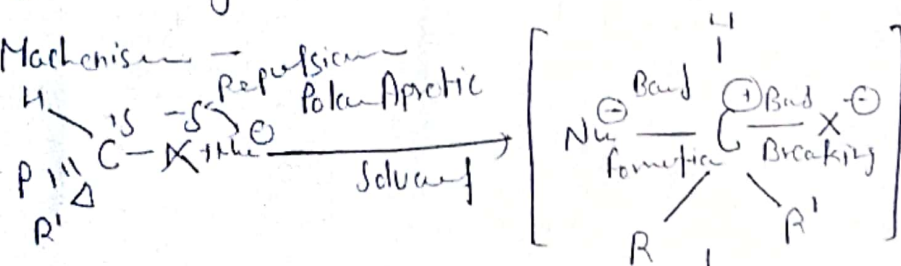 Mechanism - Repulsion
Polar Aprotic
Solvent
H
C - X + Nu⊖
R'
H
Nu⊖ — C⊕ — X⊖
Bond Formation
Bond Breaking
R R'